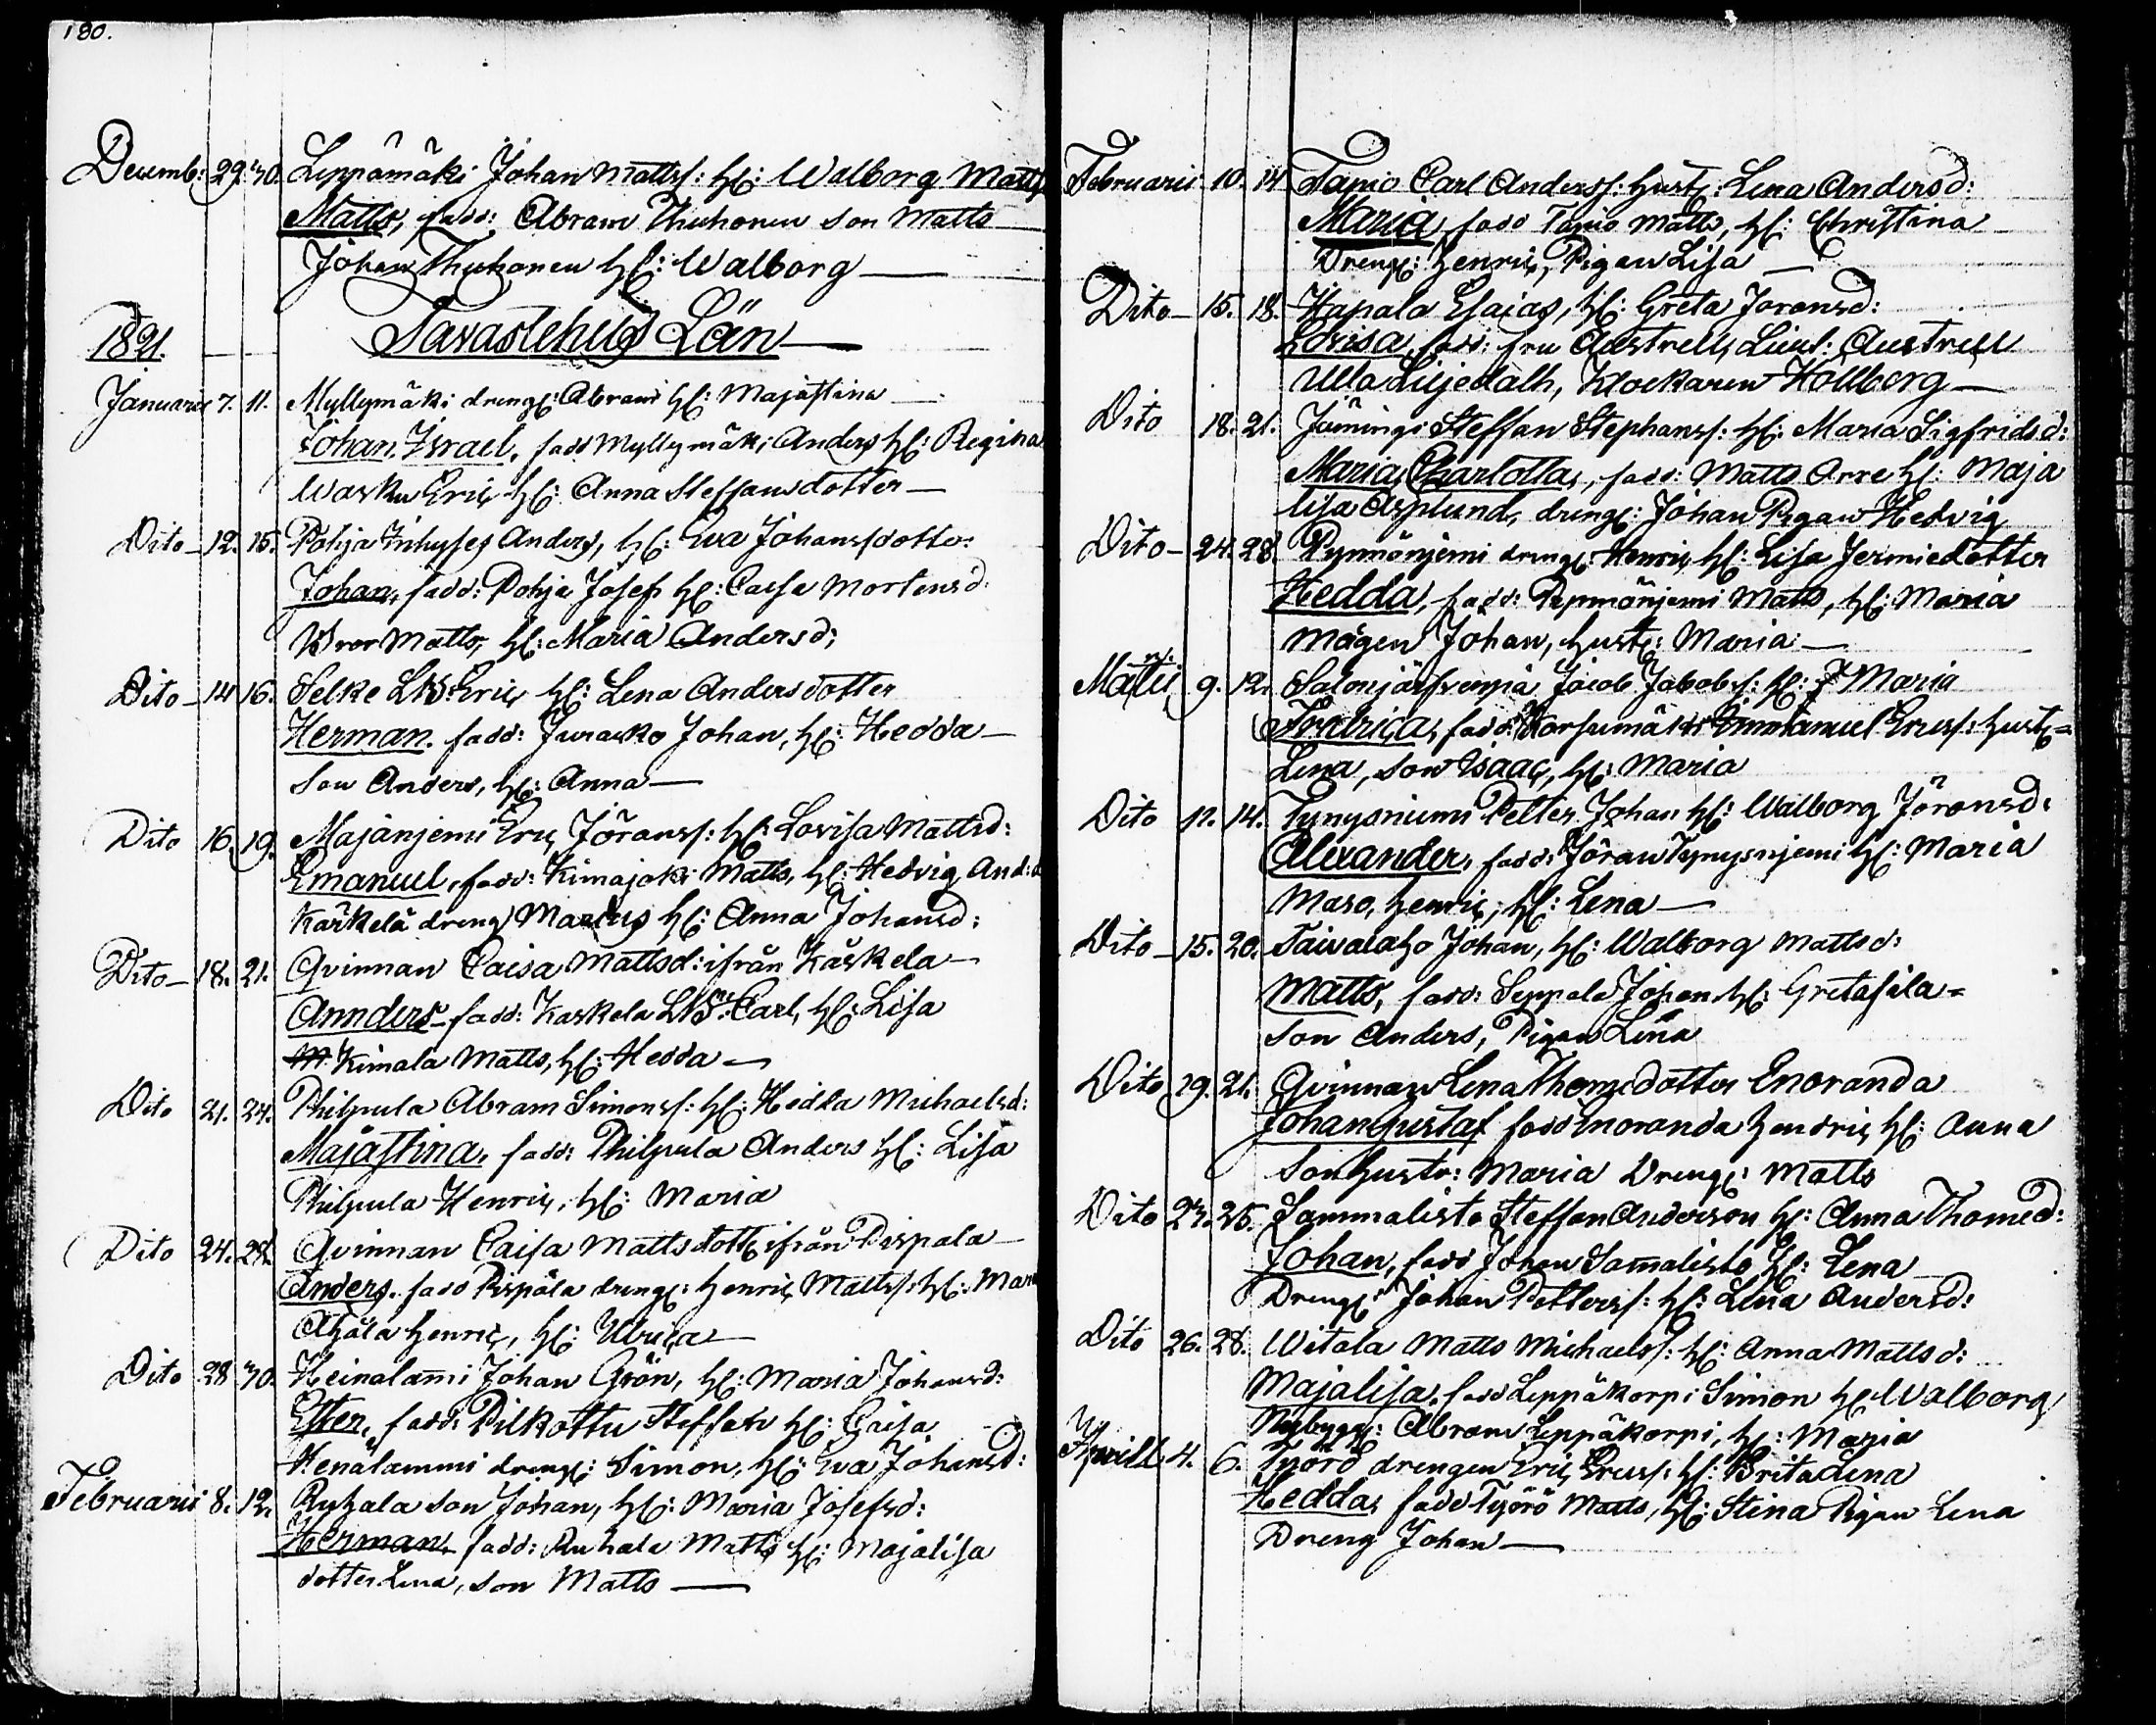 180.
Decemb: 29. 30. Leppämäki Johan Mattss: H: Walborg Matts
Matts, fadd: Abram Thuhonen Son Matts
Johan Thuhonen H: Walborg
Tavastehus Län
1821.
Januarii 7. 11. Myllymäki dreng: Abram H: Majastina
Johan Israel, fadd Myllymäki Anders H: Regina
Wasku Eric H: Anna Steffansdotter
Dito 12. 15. Pohja Inhyses Anders, H: Eva Johansdotter
Johan, fadd: Pohja Josef H: Caisa Mortensd:
Bror Matts, H: Maria Andersd:
Dito 14 16. Selke Eric H: Lena Andersdotter
Herman. fadd: Juusko Johan, H: Hedda
Son Anders, H: Anna
Dito 16. 19. Majanjemi Eric Joransf: H: Lovisa Mattsd:
Emanuel, fadd: Kimajoki Matts, H: Hedvig And:
Karkela dreng Marcus H: Anna Johansd:
Dito 18. 21. Qvinnan Caisa Mattsd: ifrån Kaskela
Annders fadd: Kaskela Carl, H: Lisa
Kimala Matts, H: Hedda
Dito 21. 24. Philpula Abram Simonsf: H: Hedda Michaelsd:
Majastina, fadd: Philpula Anders H: Lisa
Philpula Henric, H: Maria
Dito 24. 28. Qvinnan Caisa Matts dott ifrån Pispala
Anders. fadd Pispala dreng: Henric Mattsf: H: Mari
Ahjala Henric, H: Ulrica
Dito 28 30. Heinalammi Johan Grön, H: Maria Johansd:
Ester, fadd: Pilkottu Steffan H: Caisa
Henalammi dreng: Simon, H: Eva Johansd:
Februarii 8. 12. Ruhala Son Johan, H: Maria Josefsd:
Herman, fadd: Ruhala Matts H: Majalisa
dotter Lena, Son Matts
Februarii 10. 14 Tapio Carl Andersf: Hustr: Lena Andersd:
Maria, fadd Tapio Matts, H: Christina
Dreng: Henric, Pigan Lisa
Dito 15. 18. Hapala Esaias, H: Greta Joransd:
Lovisa, fadd: fru Austrell, Austrell
Ulla Liljedalh, Klockaren Hollberg
Dito 18. 21. Jämingi Steffan Stephansf: H: Maria Sigfridsd:
Maria Charlotta, fadd: Matts Orre H: Maja
lisa Asplund, dreng: Johan Pigan Hedvig
Dito 24. 28. Pynnönjemi dreng: Henric H: Lisa Jermiedotter
Hedda, fadd: Pynnönjemi Matts, H: Maria
Mågen Johan, hustr: Maria
Martii 9. 12. Salonjärfvenpä Jacob Jacobsf: H: Maria
fadd: Korsumäki Emmanuel Ericsf: hustr
Lena, Son Isaac, H: Maria
Dito 12. 14. Tynysniemi Petter Johan H: Walborg Joransd:
Alexander, fadd: Jöran Tynysnjemi H: Maria
Maso, Henric, H: Lena
Dito 15. 20. Taivalaho Johan, H: Walborg Mattsd:
Matts, fadd: Seppala Johan H: Gretalisa
Son Anders, Pigan Lina
Dito 19. 21. Qvinnan Lena Thomsdotter Enoranda
Johan Gustaf fadd Enoranda Hendric H: Anna
Son hustr: Maria Dreng: Matts
Dito 23. 25. Sammalisto Steffan Anderson H: Anna Thomed:
Johan, fadd Johan Samalisto H: Lena
Dreng: Johan Pettersf: H: Lena Andersd:
Dito 26. 28. Witala Matts Michaelsf: H: Anna Mattsd:
Majalisa, fadd Leppäkorpi Simon H: Walborg
Nybygg: Abram Leppäkorpi, H: Maria
Aprill 4. 6. Työrö drengen Eric Ericsf: H: Brita Lena
Hedda, fadd Työrö Matts, H: Stina Pigan Lena
Dreng Johan